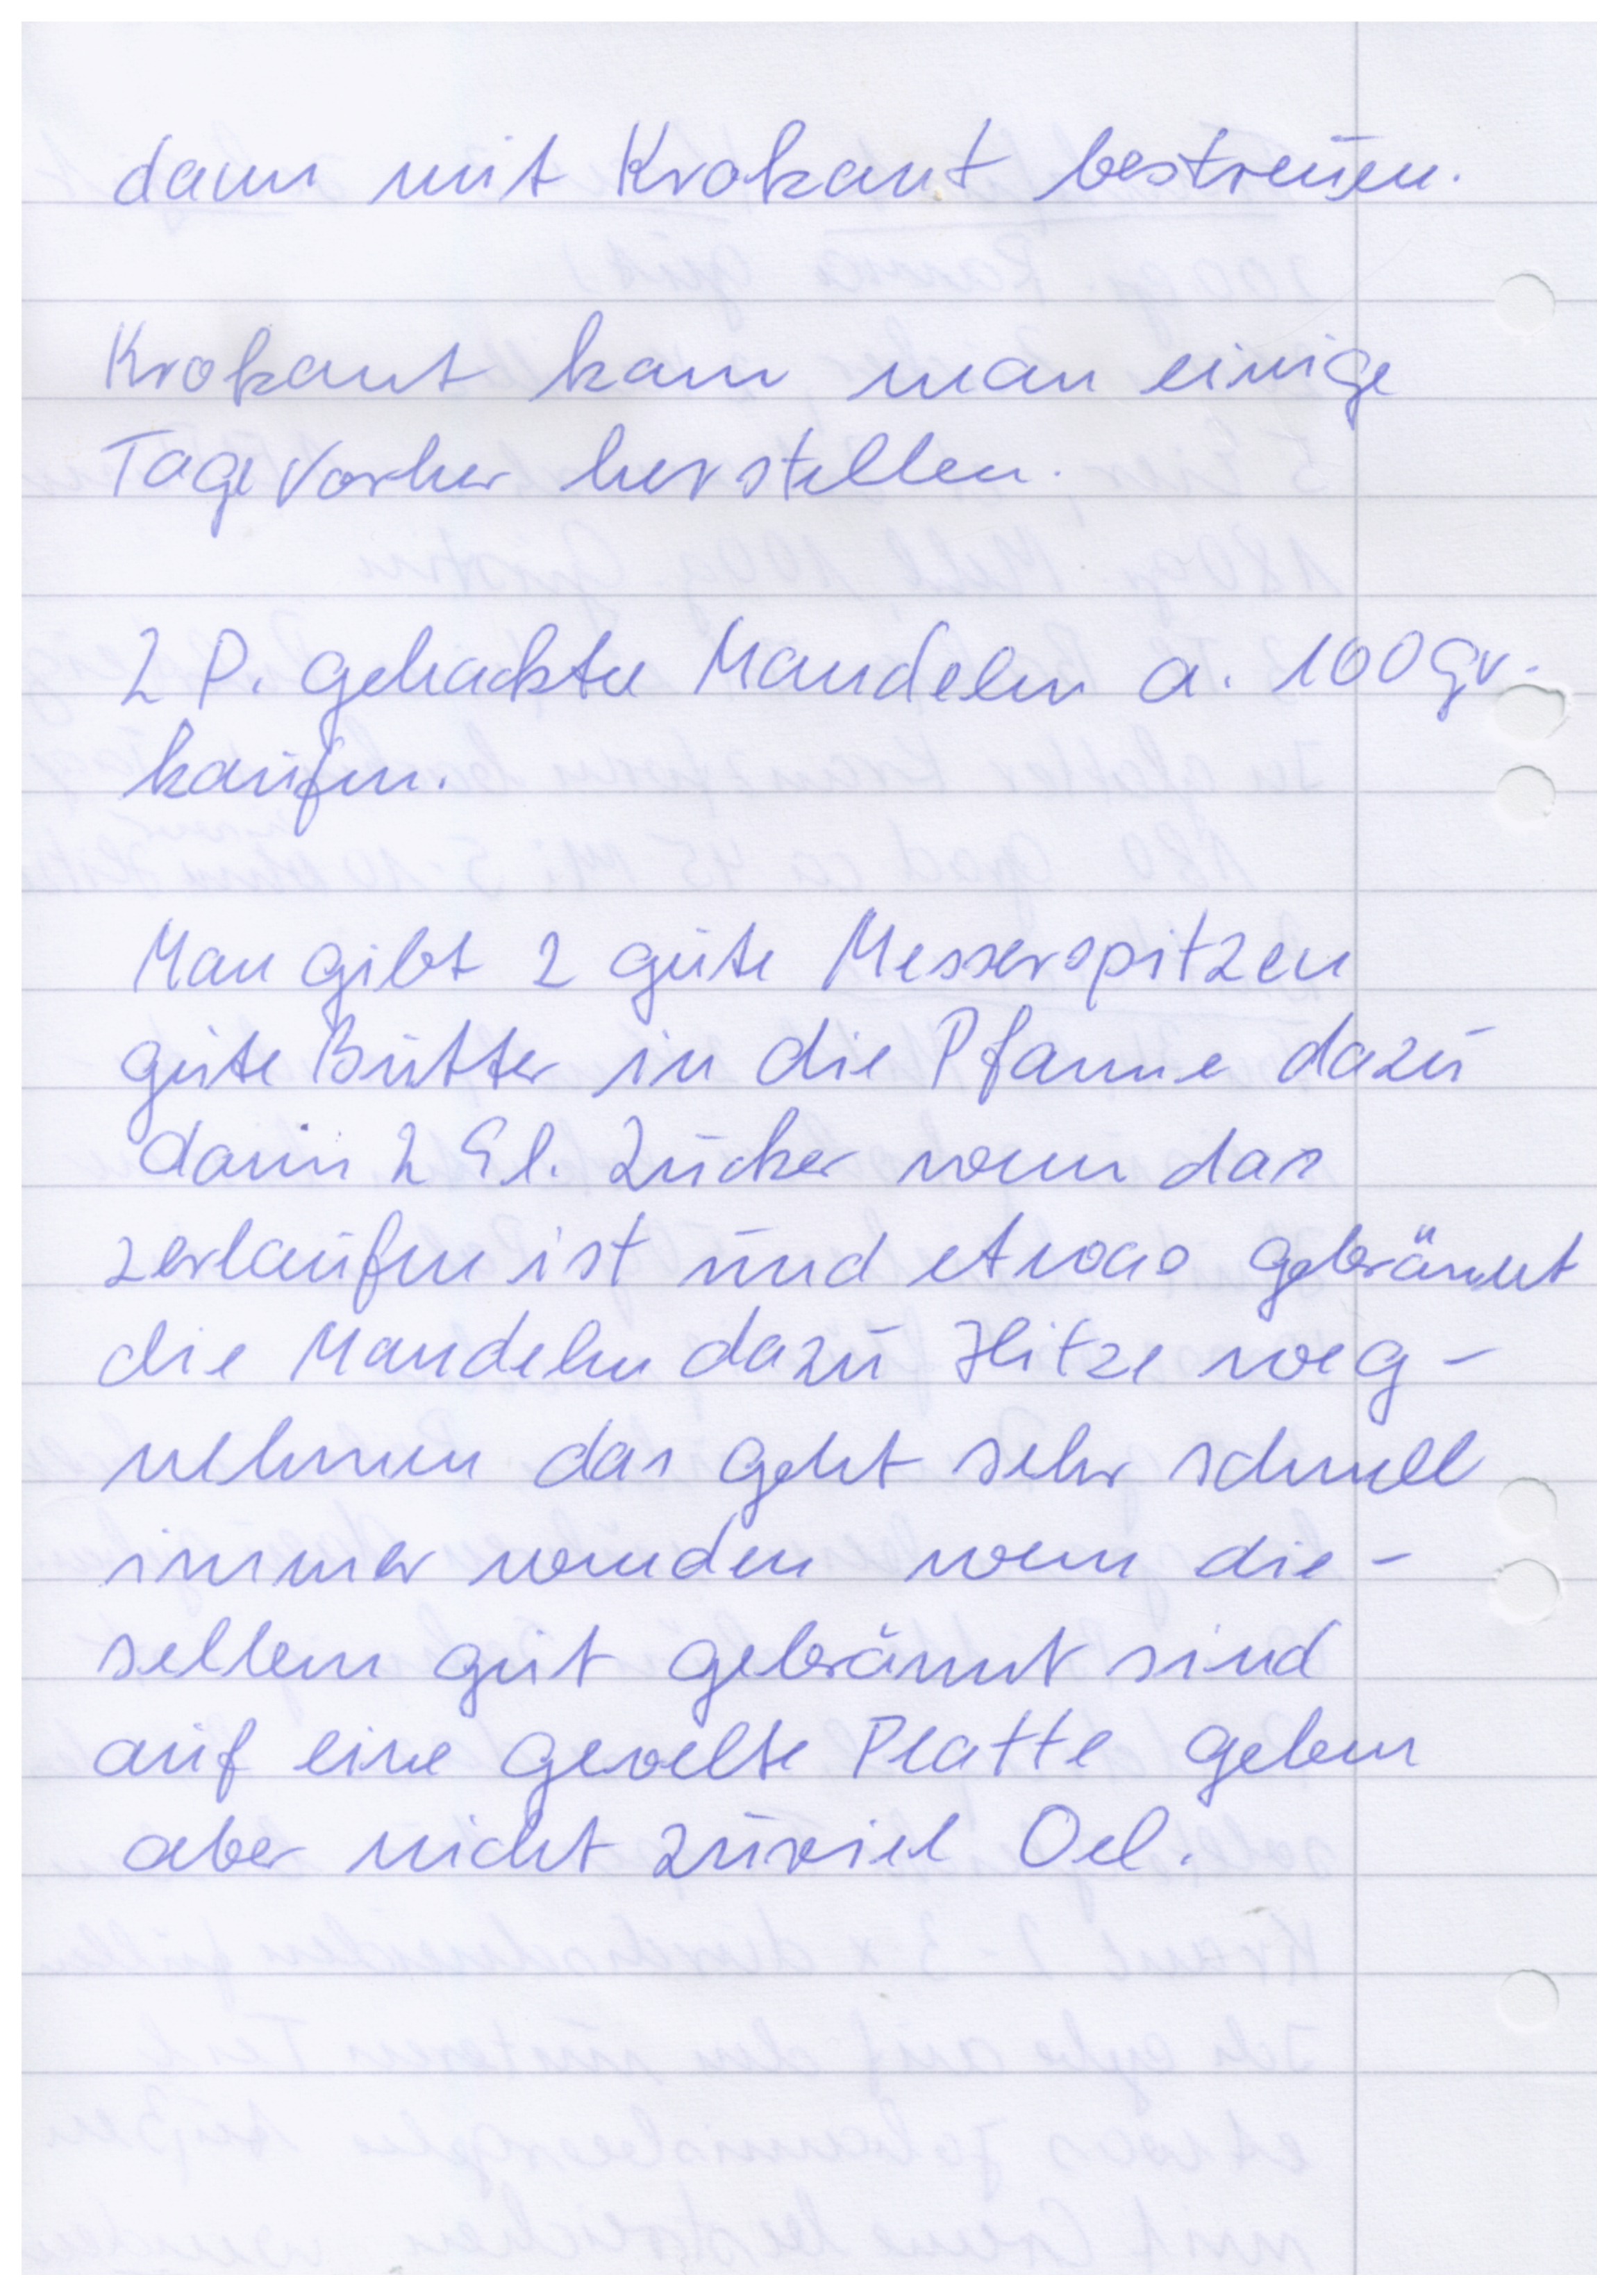 dann mit Krokant bestreuen.
Krokant kann man einige
Tage vorher herstellen.
2 P. gehackte Mandeln a. 100 gr.
kaufen.
Man gibt 2 gute Messerspitzen
gute Butter in die Pfanne dazu
dann 2 El. Zucker wenn das
zerlaufen ist und etwas gebräunt
die Mandeln dazu Hitze weg-
nehmen das geht sehr schnell
immer wenden wenn die-
selben gut gebräunt sind
auf eine geoelte Platte geben
aber nicht zuviel Oel.